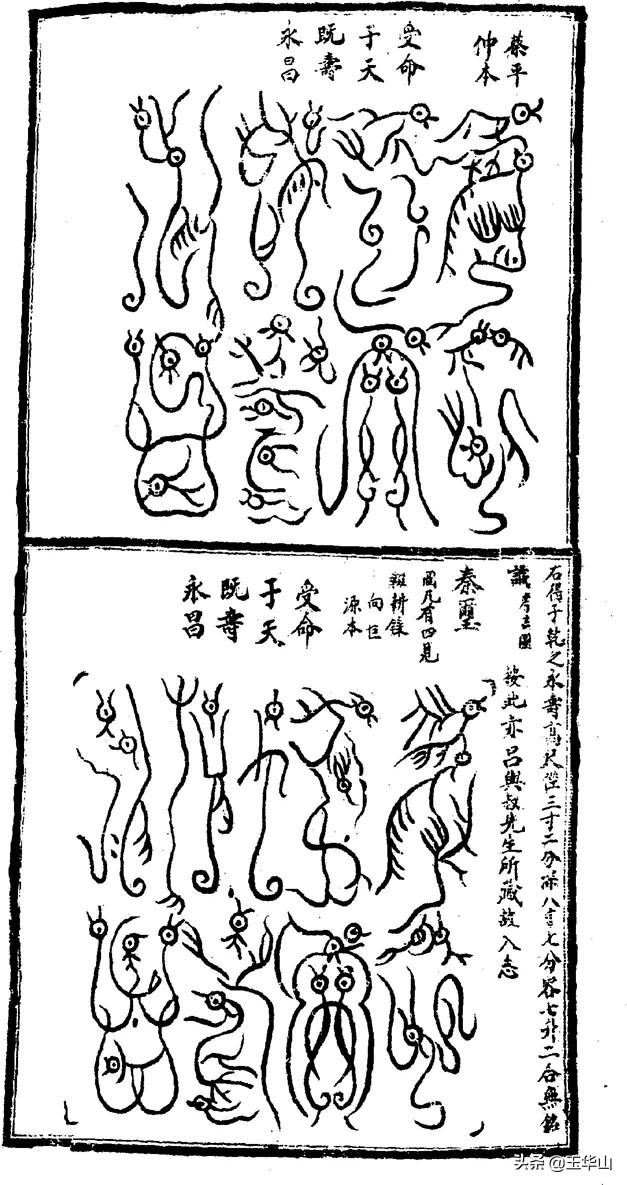 蔡平
仲本
受命
于天
既壽
永昌
右得于乾之永壽高尺徑三寸二分深八寸七分容七升二合無銘
識 考古圖
按此亦呂與叔先生所藏故入志
秦璽
圖凡有四見
輟耕錄
向巨
源本
受命
于天
既壽
永昌
头条 @玉华山